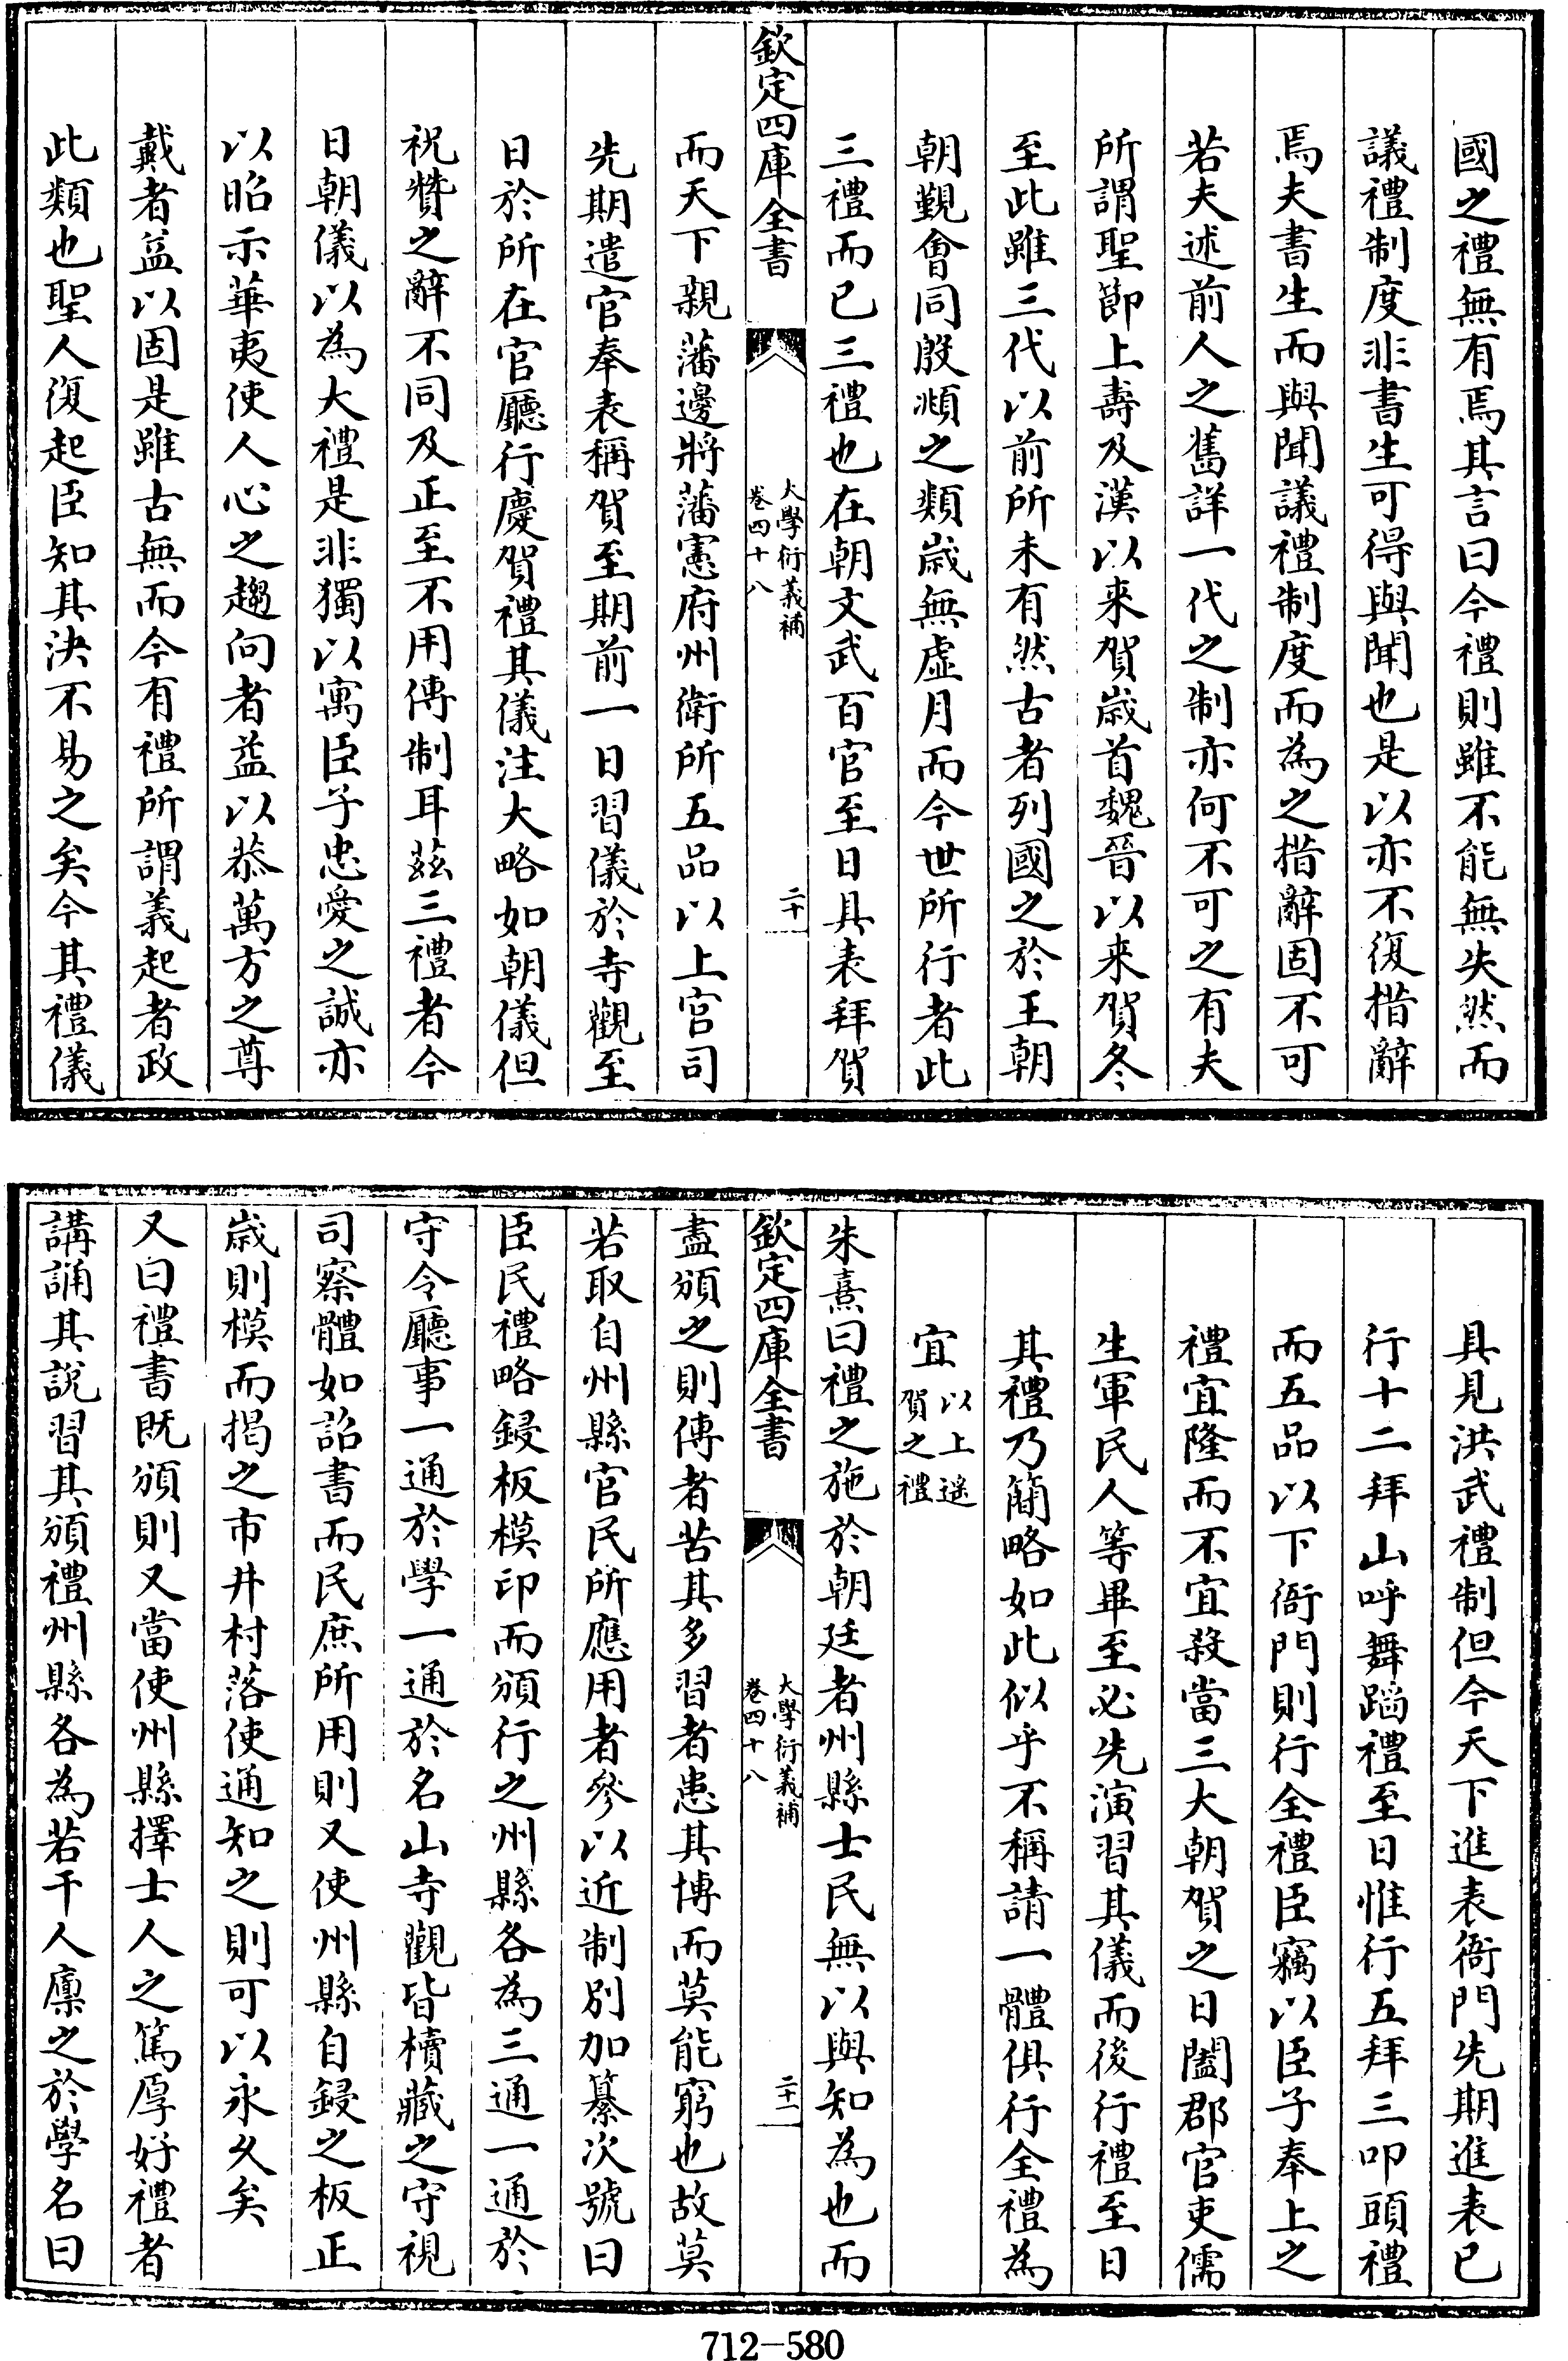 國之禮無有焉其言曰今禮則雖不能無失然而
議禮制度非書生可得與聞也是以亦不復措辭
焉夫書生而與聞議禮制度而為之措辭固不可
若夫述前人之舊詳一代之制亦何不可之有夫
所謂聖節上壽及漢以来賀歲首魏晉以来賀冬
至此雖三代以前所未有然古者列國之於王朝
朝覲會同殷頫之類歲無虛月而今世所行者此
三禮而已三禮也在朝文武百官至日具表拜賀
欽定四庫全書
大學衍義補
卷四十八
二十
而天下親藩邊將藩憲府州衛所五品以上官司
先期遣官奉表稱賀至期前一日習儀於寺觀至
日於所在官廳行慶賀禮其儀注大略如朝儀但
祝贊之辭不同及正至不用傳制耳茲三禮者今
日朝儀以為大禮是非獨以寓臣子忠愛之誠亦
以昭示華夷使人心之趨向者益以恭萬方之尊
戴者益以固是雖古無而今有禮所謂義起者政
此類也聖人復起臣知其決不易之矣今其禮儀
具見洪武禮制但今天下進表衙門先期進表已
行十二拜山呼舞蹈禮至日惟行五拜三叩頭禮
而五品以下衙門則行全禮臣竊以臣子奉上之
禮宜隆而不宜殺當三大朝賀之日闔郡官吏儒
生軍民人等畢至必先演習其儀而後行禮至日
其禮乃簡略如此似乎不稱請一體俱行全禮為
宜
以上遥
賀之禮
朱熹曰禮之施於朝廷者州縣士民無以與知為也而
欽定四庫全書
大學衍義補
卷四十八
二十一
盡頒之則傳者苦其多習者患其博而莫能窮也故莫
若取自州縣官民所應用者參以近制別加纂次號曰
臣民禮略鋟板模印而頒行之州縣各為三通一通於
守令廳事一通於學一通於名山寺觀皆櫝藏之守視
司察體如詔書而民庶所用則又使州縣自鋟之板正
歲則模而揭之市井村落使通知之則可以永久矣
又曰禮書既頒則又當使州縣擇士人之篤厚好禮者
講誦其說習其頒禮州縣各為若干人廪之於學名曰
712-580